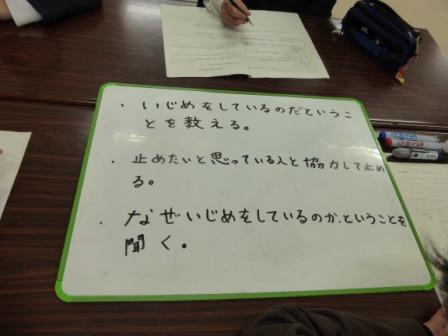 ・いじめをしているのだというこ
とを教える。
・止めたいと思っている人と協力して止め
る。
・なぜいじめをしているのか、ということを
聞く。